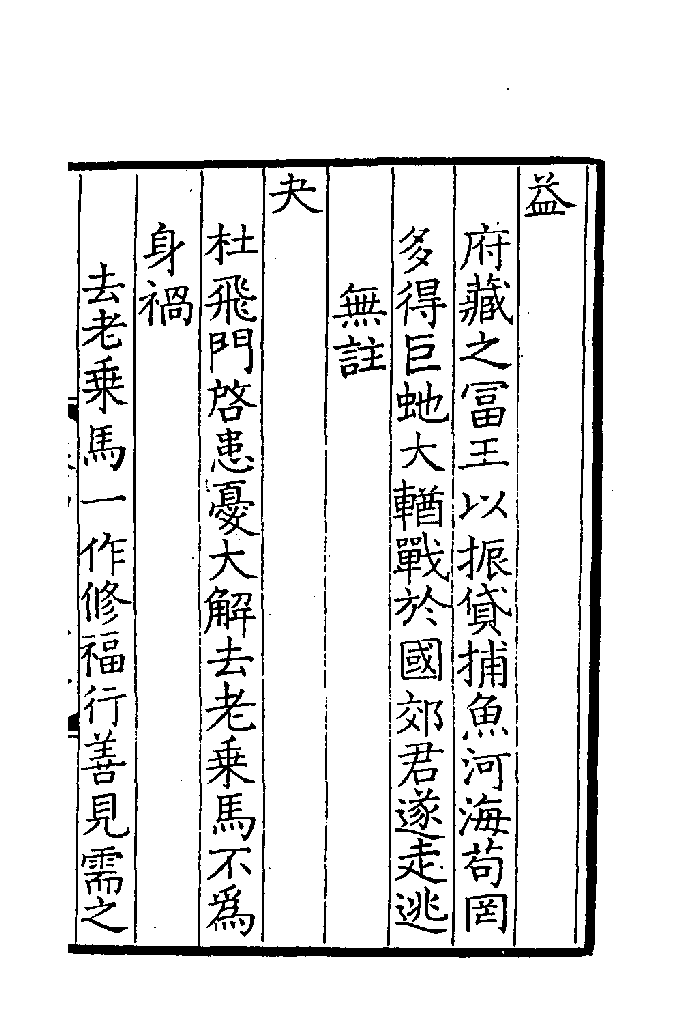 益
府藏之冨王以振貸捕魚河海苟罔
多得巨虵大輶戰於國郊君遂走逃
無註
夬
杜飛門啓患憂大解去老乗馬不爲
身禍
去老乗馬一作修福行善見需之